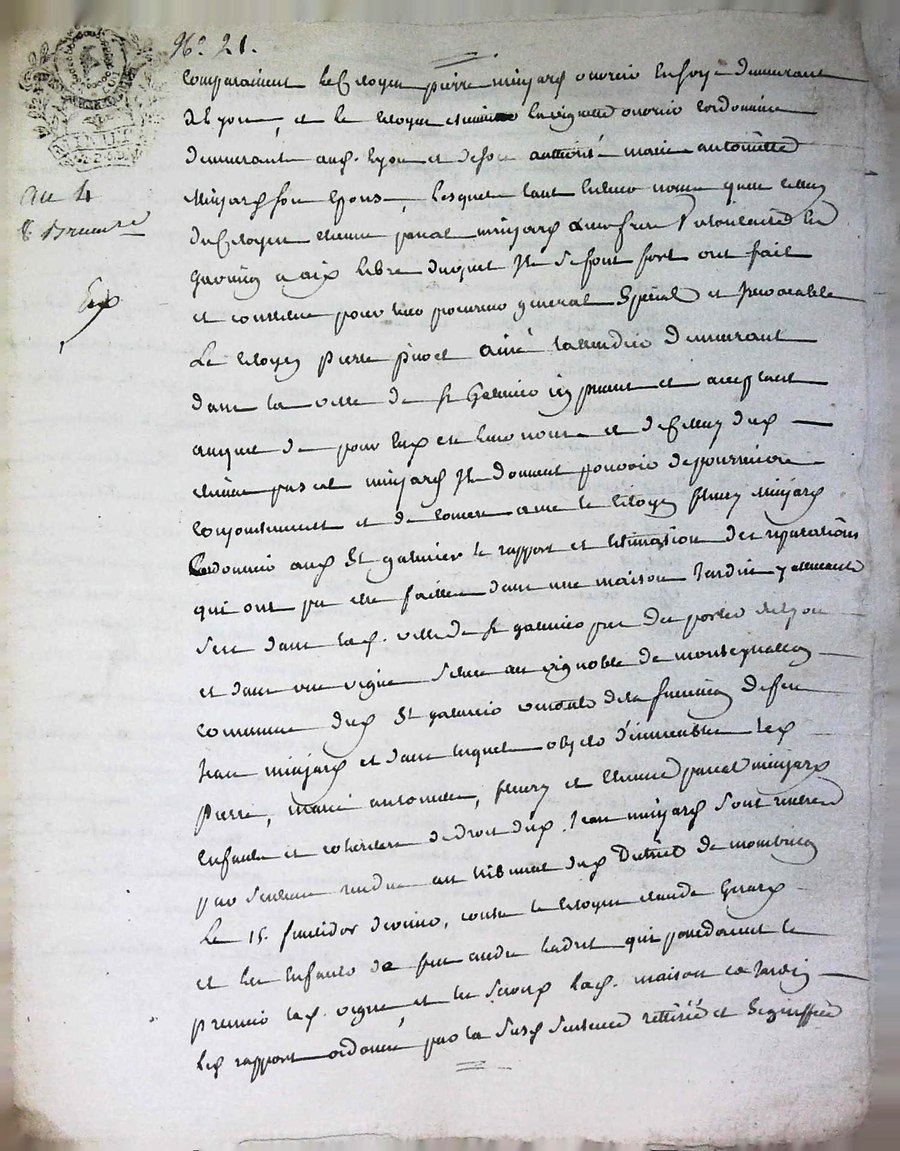 N.° 21.
an 4
8 Brumre
Exp
Comparaissent le Citoyen pierre minjard ouvrier En soye demeurant
à Lyon, et le Citoyen ouvrier Cordonnier
demeurant aud. Lyon et de son authorité marie antoinette
Minjard son Epouse, lesquels tant En leurs noms que Celluy
du Citoyen Etienne pascal minjard leur frere volontaire En
garnison a aix libre duquel Ils se font fort ont fait
et constitué pour leur procureur general Spécial et Irrevocable
Le Citoyen pierre ainé demeurant
dans la ville de St Galmier icy présent et acceptant
auquel de pour Eux et leurs noms et de Celluy dud
Etienne pascal minjard Ils donnent pouvoir de poursuivre
Conjointement et de concert avec le Citoyen fleury Minjard
Cordonnier aud St galmier le rapport et Estimation des réparations
qui ont pu etre faittes dans une maison Jardin y attenant
Sise dans lad. ville de St galmier prés des portes de Lyon
et dans une vigne Située au vignoble de
commune dud St galmier de la succession de feu
Jean minjard et dans lesquels objets d'immeubles lesd
Pierre, marie antoinette, fleury et Etienne pascal minjard
Enfants et cohéritiers de droit dud. Jean minjard sont rentrés
par Sentence rendue au tribunal dud District de montbrison
Le 15. fructidor dernier, contre le Citoyen claude Girard
et les Enfants de feu andré qui possedoient le
premier lad. vigne, et les seconds lad. maison et Jardin
Led rapport ordonné par la susd Sentence et Signiffiée